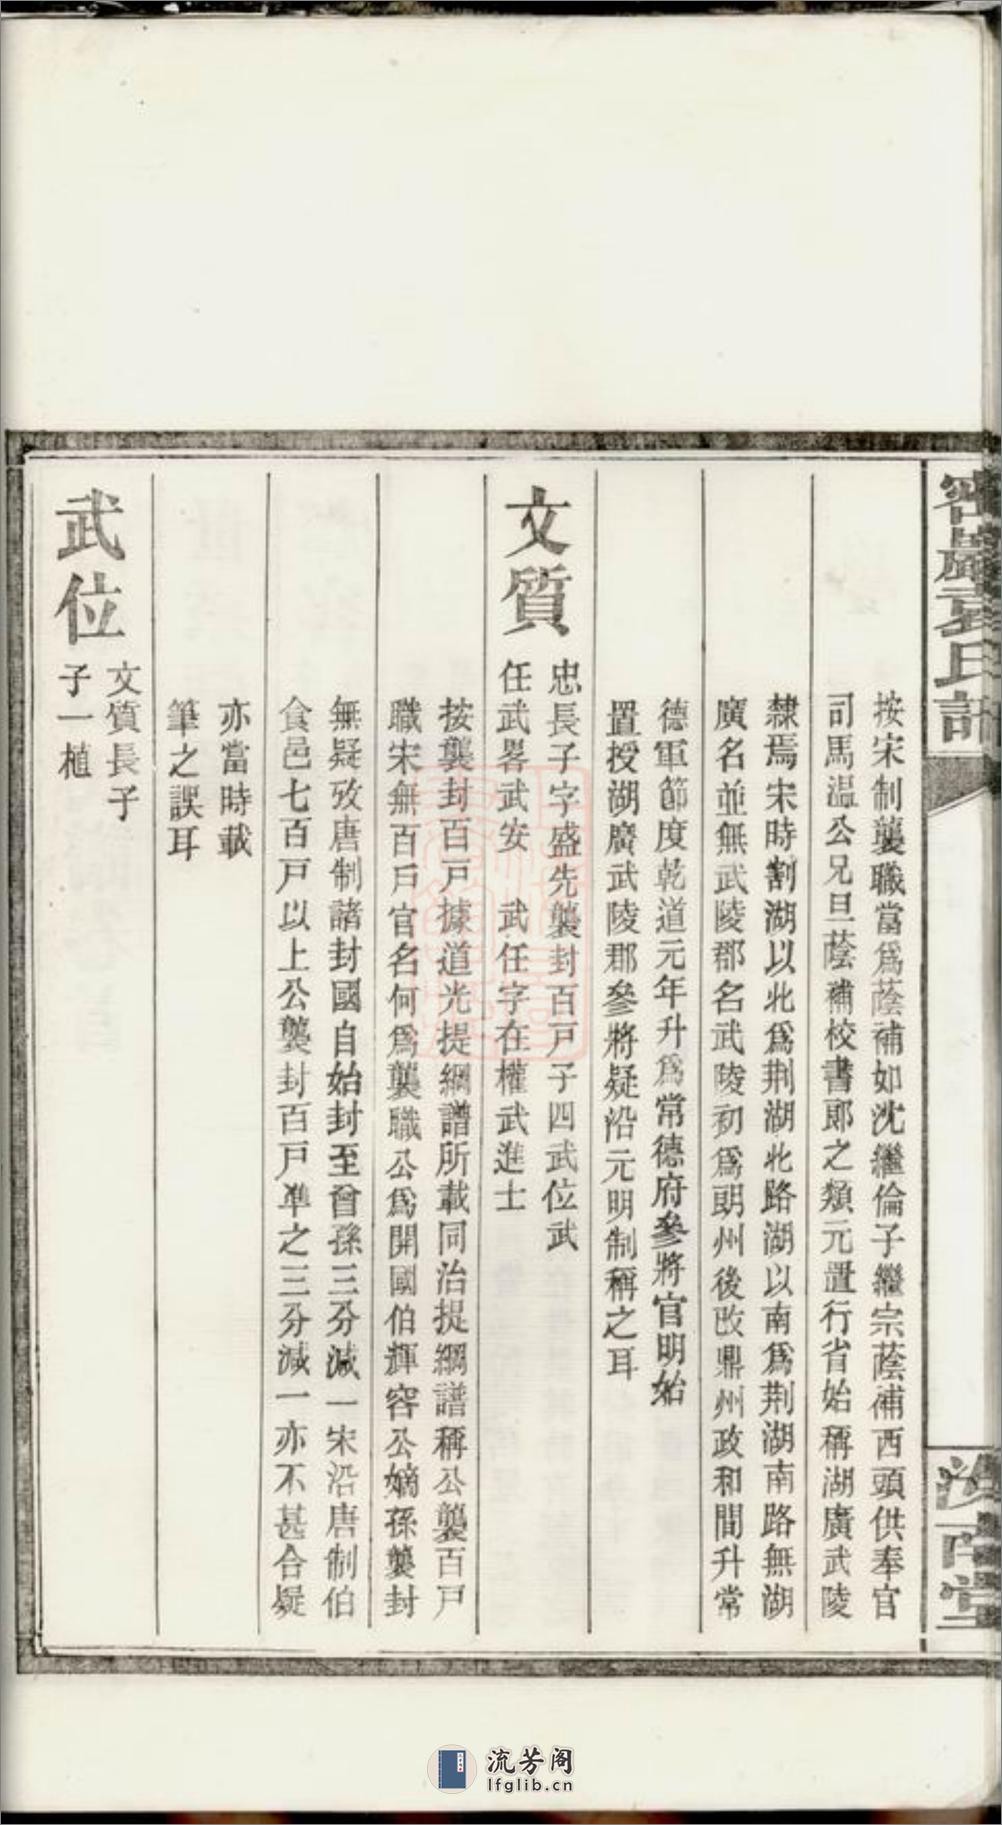 巖袁氏
堂
按宋制襲職當爲蔭補如沈繼倫子繼宗蔭補西頭供奉官
司馬温公兄旦蔭補校書郎之類元置行省始稱湖廣武陵
隸焉宋時割湖以北爲荆湖北路湖以南爲荆湖南路無湖
廣名並無武陵郡名武陵初爲朗州後改鼎州政和間升常
德軍節度乾道元年升爲常德府參將官明始
置授湖廣武陵郡參將疑沿元明制稱之耳
文質
忠長子字盛先襲封百戸子四武位武
任武畧武安　武任字在權武進士
按襲封百戸據道光提綱譜所載同治提綱譜稱公襲百戸
職宋無百戸官名何爲襲職公爲開國伯輝容公嫡孫襲封
無疑攷唐制諸封國自始封至曾孫三分減一宋沿唐制伯
食邑七百戸以上公襲封百戸準之三分減一亦不甚合疑
亦當時載
筆之誤耳
武位
文質長子
子一植
流芳阁
lfglib.cn